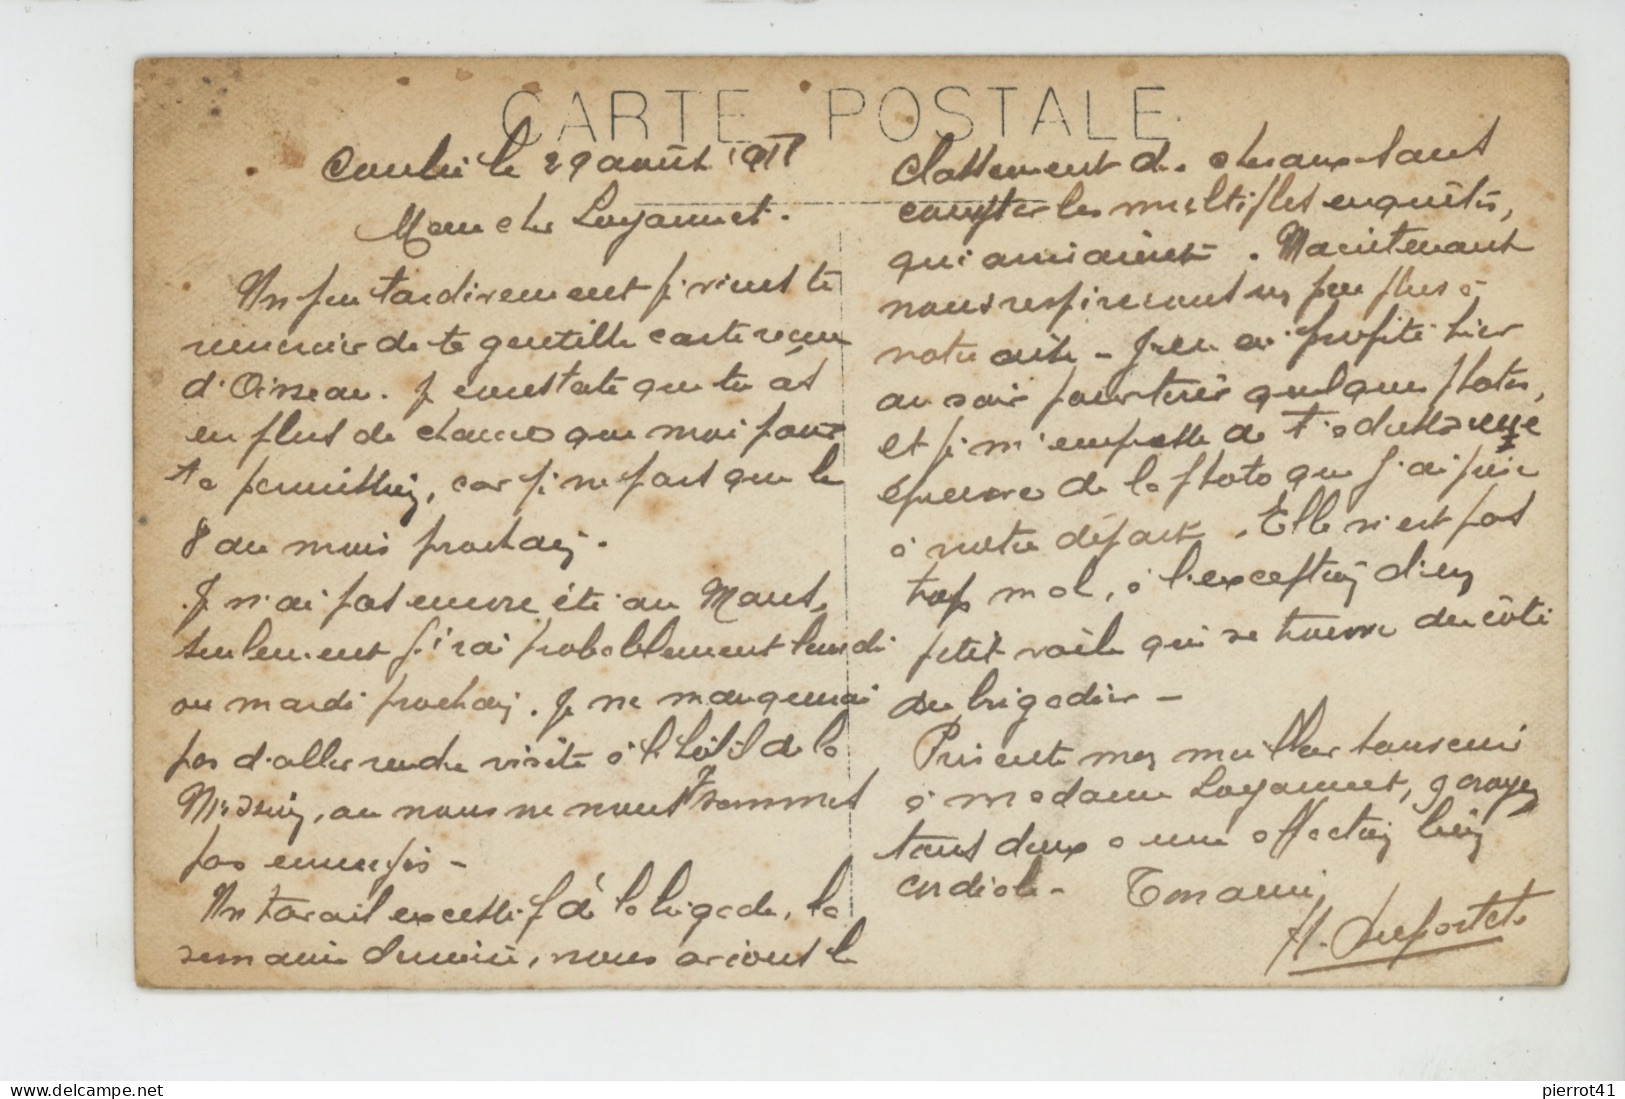 CARTE POSTALE
Conlie le 29 août 191
Mon cher Loyannet.
Un peu tardivement je viens te
remercier de ta gentille carte reçue
d'Oisseau. Je constate que tu as
eu plus de chance que moi pour
ta permission, car je ne pars que le
8 du mois prochain.
Je n'ai pas encore été au Mans,
seulement j'irai probablement lundi
ou mardi prochain. Je ne manquerai
pas d'aller rendre visite à l'hôtel de la
où nous ne nous sommes
pas ennuyés -
Un travail excessif à la brigade, la
semaine dernière, nous avions le
classement des chevaux sans
compter les multiples enquêtes,
qui arrivaient. Maintenant
nous respirerons un peu plus à
notre aise - J'en ai profité hier
au soir pour tirer quelques photos,
et je m'empresse de t'adresser une
épreuve de la photo que j'ai prise
à notre départ. Elle n'est pas
trop mal, à l'exception d'un
petit voile qui se trouve du côté
du brigadier -
Présente mes meilleurs souvenirs
à madame Loyannet, croyez
tous deux à une affection bien
cordiale - Ton ami
H. Duportet
pierrot41
delcampe.net